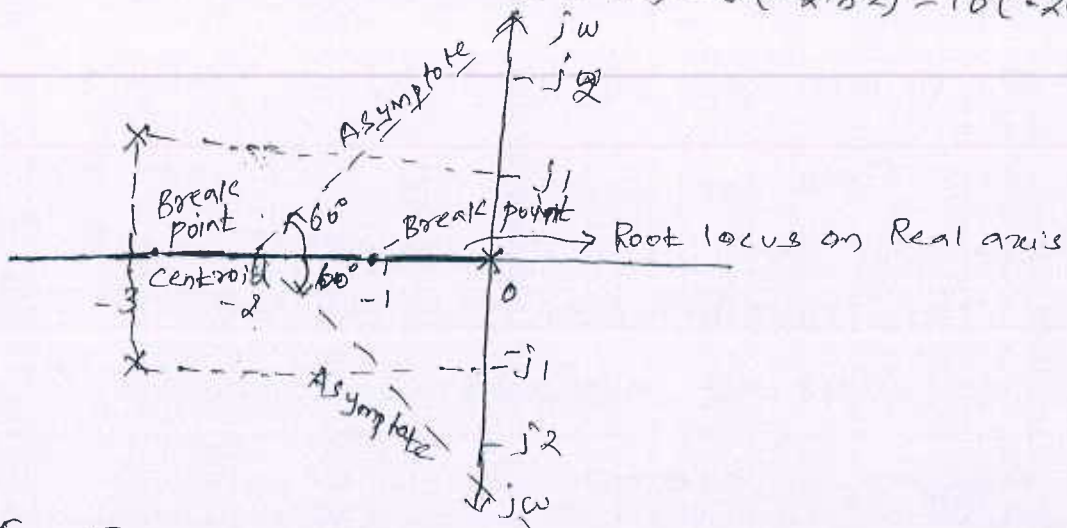 jω
j2
Asymptote
j1
Break
point
60°
Break point
Root locus on Real axis
centroid
60°
-3
-2
-1
0
-j1
Asymptote
j2
jω